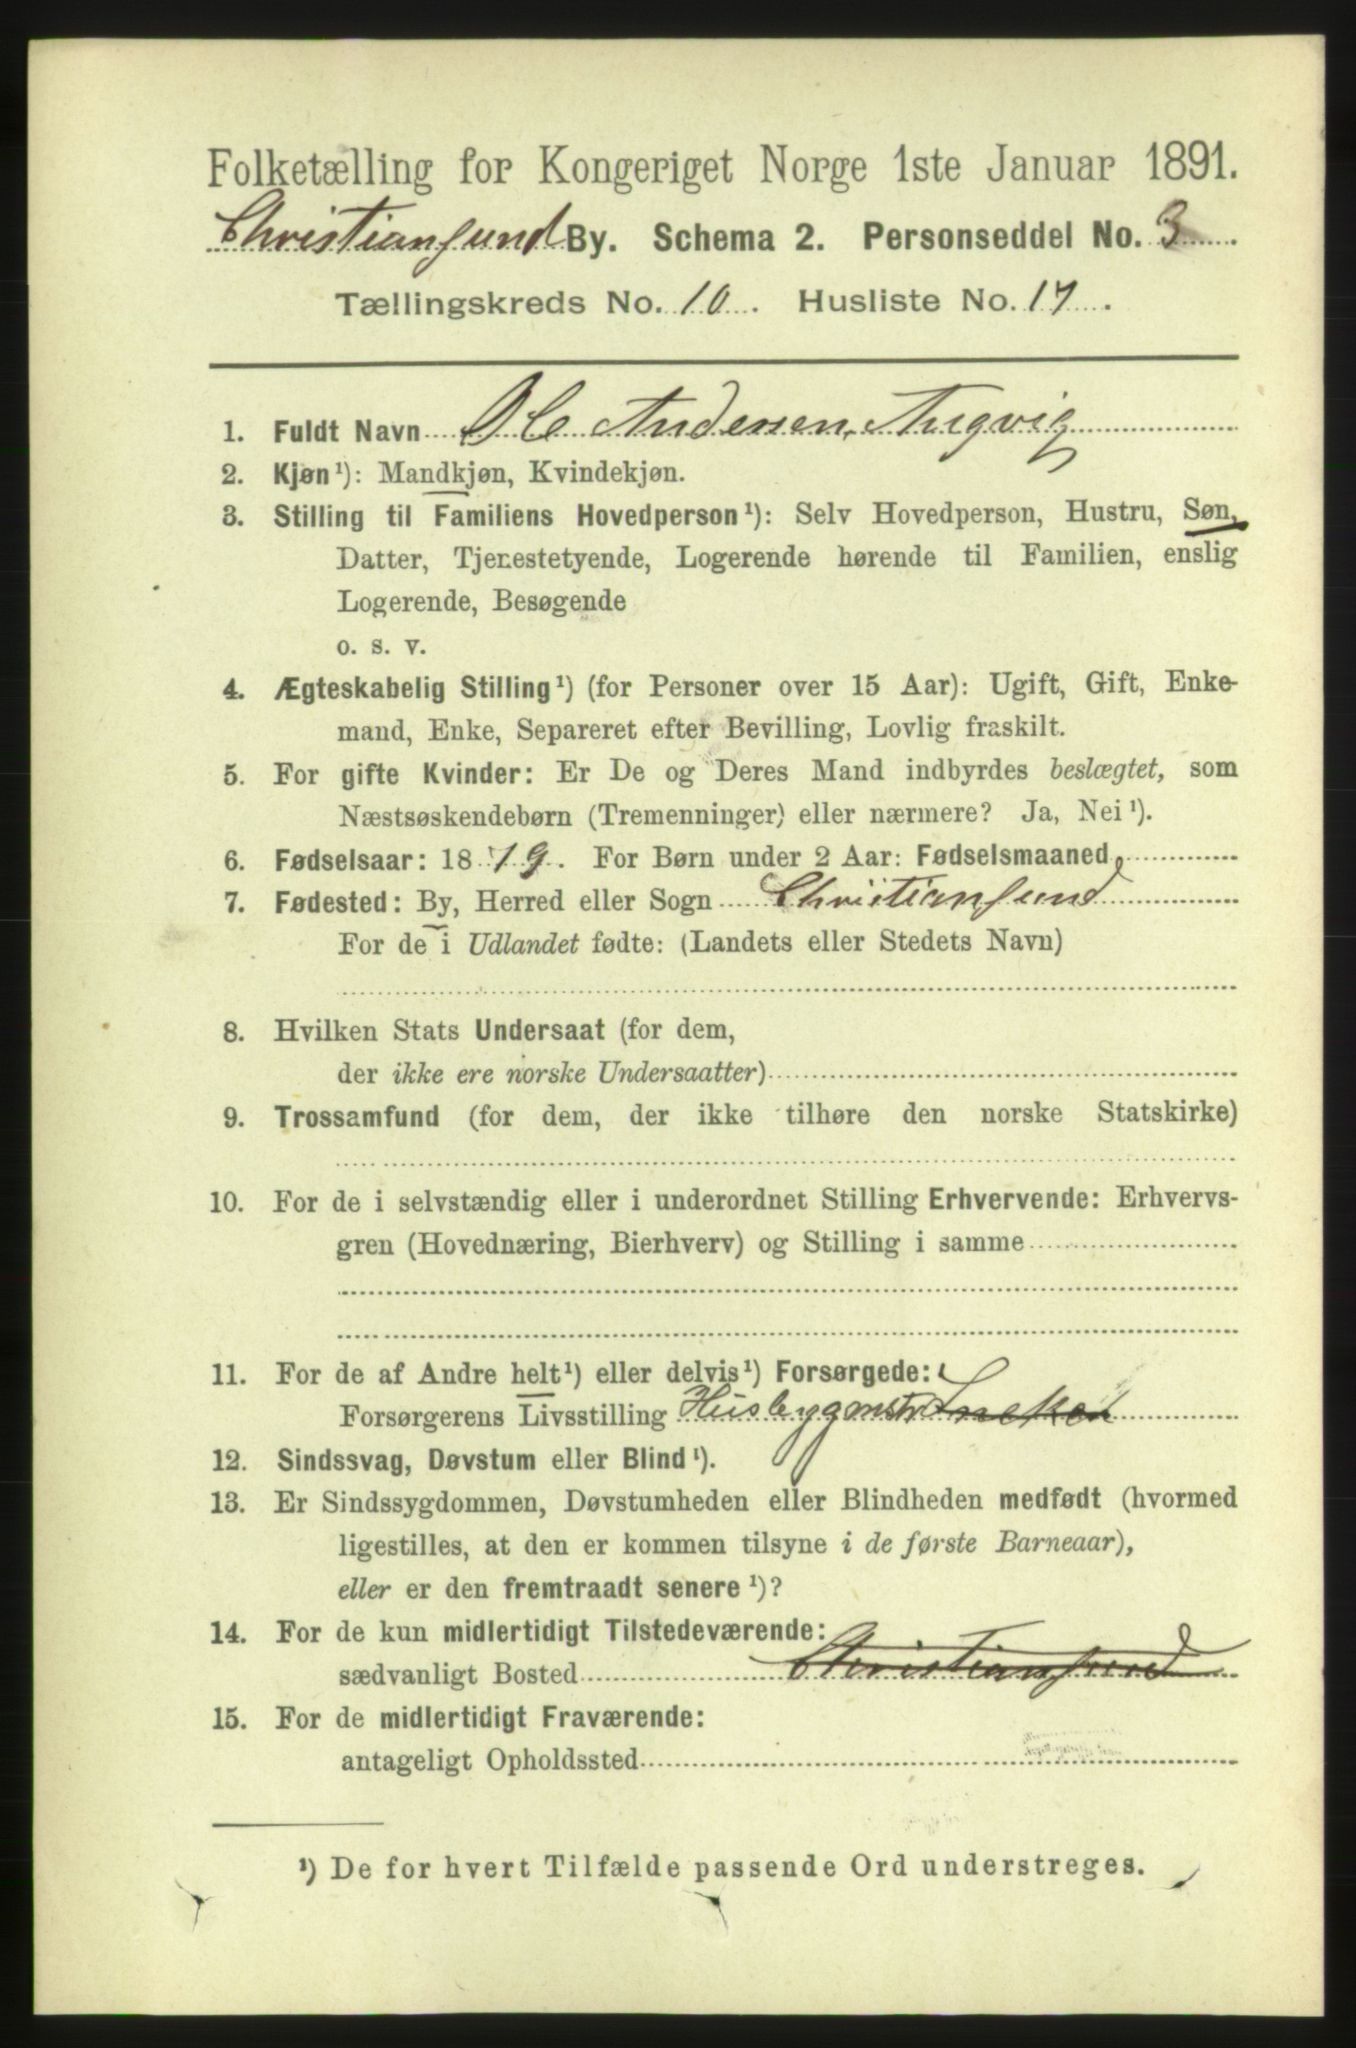 Folketælling for Kongeriget Norge 1ste Januar 1891.
Christiansund By. Schema 2. Personseddel No. 3
Tællingskreds No. 10. Husliste No. 17.
1. Fuldt Navn Ole Andersen Angvig
2. Kjøn¹): Mandkjøn, Kvindekjøn.
3. Stilling til Familiens Hovedperson¹): Selv Hovedperson, Hustru, Søn,
Datter, Tjenestetyende, Logerende hørende til Familien, enslig
Logerende, Besøgende
o. s. v.
4. Ægteskabelig Stilling¹) (for Personer over 15 Aar): Ugift, Gift, Enke-
mand, Enke, Separeret efter Bevilling, Lovlig fraskilt.
5. For gifte Kvinder: Er De og Deres Mand indbyrdes beslægtet, som
Næstsøskendebørn (Tremenninger) eller nærmere? Ja, Nei¹).
6. Fødselsaar: 1879. For Børn under 2 Aar: Fødselsmaaned
7. Fødested: By, Herred eller Sogn Christiansund
For de i Udlandet fødte: (Landets eller Stedets Navn)
8. Hvilken Stats Undersaat (for dem,
der ikke ere norske Undersaatter)
9. Trossamfund (for dem, der ikke tilhøre den norske Statskirke)
10. For de i selvstændig eller i underordnet Stilling Erhvervende: Erhvervs-
gren (Hovednæring, Bierhverv) og Stilling i samme
11. For de af Andre helt¹) eller delvis¹) Forsørgede:
Forsørgerens Livsstilling Husbygmstr Sneker
12. Sindssvag, Døvstum eller Blind¹).
13. Er Sindssygdommen, Døvstumheden eller Blindheden medfødt (hvormed
ligestilles, at den er kommen tilsyne i de første Barneaar),
eller er den fremtraadt senere¹)?
14. For de kun midlertidigt Tilstedeværende:
sædvanligt Bosted Christiansund
15. For de midlertidigt Fraværende:
antageligt Opholdssted
¹) De for hvert Tilfælde passende Ord understreges.